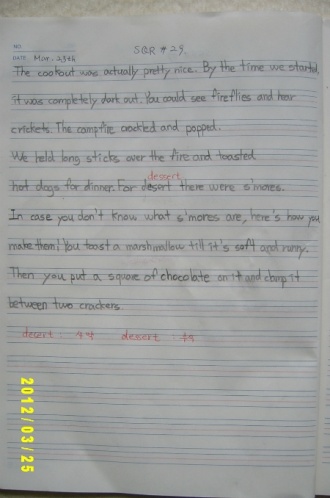 NO.
SQR #29.
DATE Mar. 25th
The cookout was actually pretty nice. By the time we started,
it was completely dark out. You could see fireflies and hear
crickets. The campfire crackled and popped.
We held long sticks over the fire and toasted
dessert
hot dogs for dinner. For desert there were s'mores.
In case you don't know what s'mores are, here's how you
make them! You toast a marshmallow till it's soft and runny.
Then you put a square of chocolate on it and clamp it
between two crackers.
desert : 사막 dessert : 후식
2012/03/25